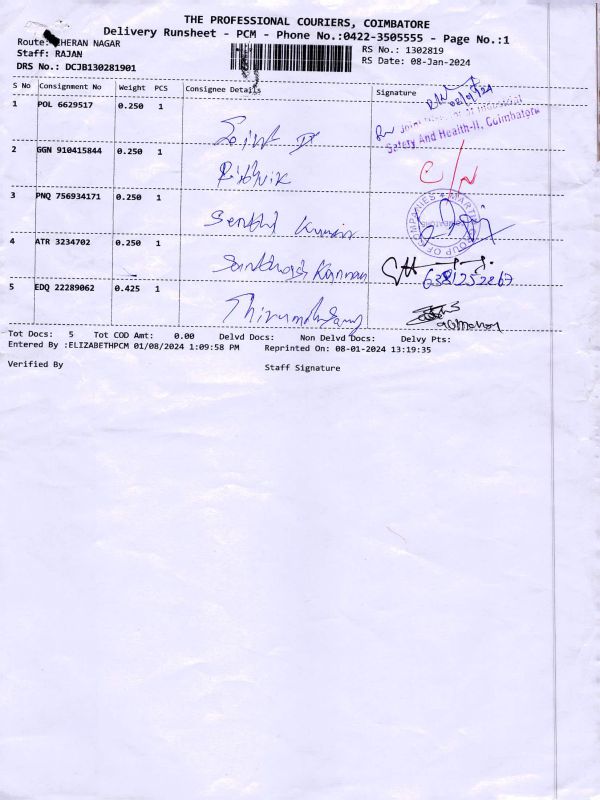 THE PROFESSIONAL COURIERS, COIMBATORE
Delivery Runsheet - PCM - Phone No.:0422-3505555 - Page No.:1
Route: CHERAN NAGAR
RS No.: 1302819
Staff: RAJAN
RS Date: 08-Jan-2024
DRS No.: DCJB130281901
S No Consignment No Weight PCS Consignee Details Signature
1 POL 6629517 0.250 1
08/01/24
Safety And Health-II, Coimbatore
2 GGN 910415844 0.250 1
C/N
3 PNQ 756934171 0.250 1
Senthil Kumar
GROUP OF COMPANIES
4 ATR 3234702 0.250 1
Santhosh Kannan
5 EDQ 22289062 0.425 1
Tot Docs: 5 Tot COD Amt: 0.00 Delvd Docs: Non Delvd Docs: Delvy Pts:
Entered By :ELIZABETHPCM 01/08/2024 1:09:58 PM Reprinted On: 08-01-2024 13:19:35
Verified By
Staff Signature